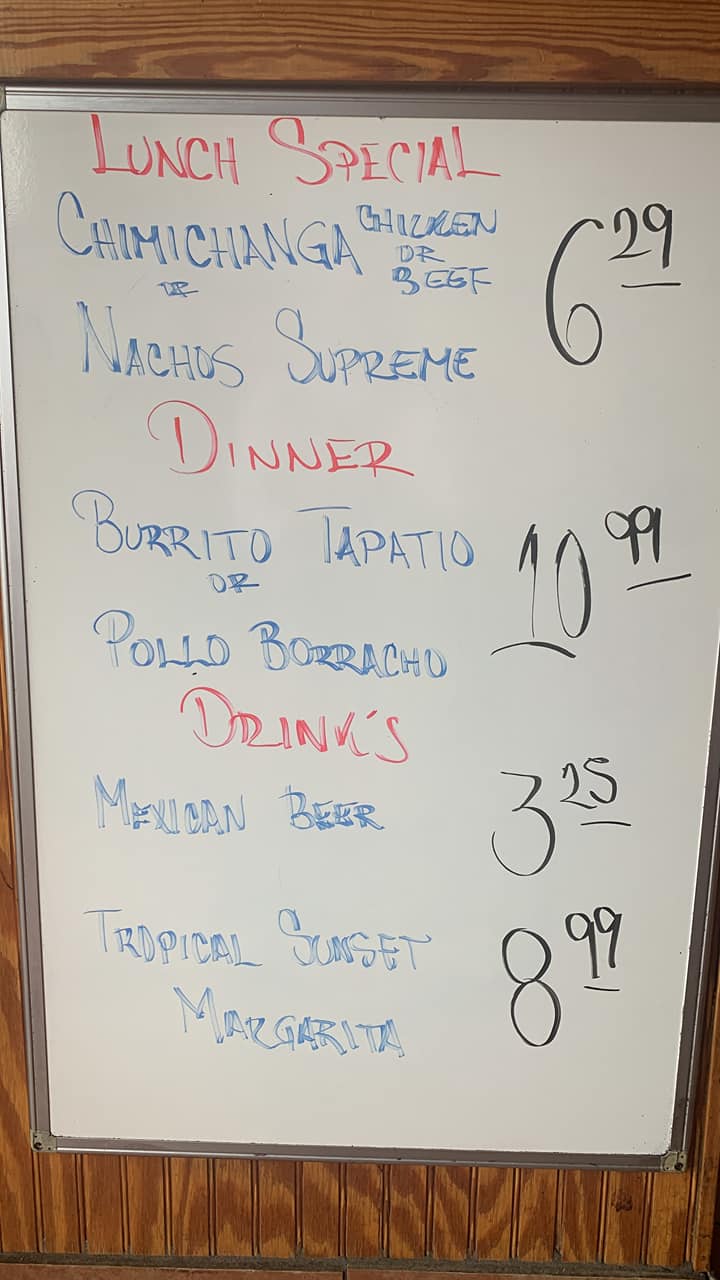 LUNCH SPECIAL
CHIMICHANGA CHICKEN OR BEEF 6 29
OR
NACHOS SUPREME
DINNER
BURRITO TAPATIO 10 99
OR
POLLO BORRACHO
DRINK'S
MEXICAN BEER 3 25
TROPICAL SUNSET 8 99
MARGARITA